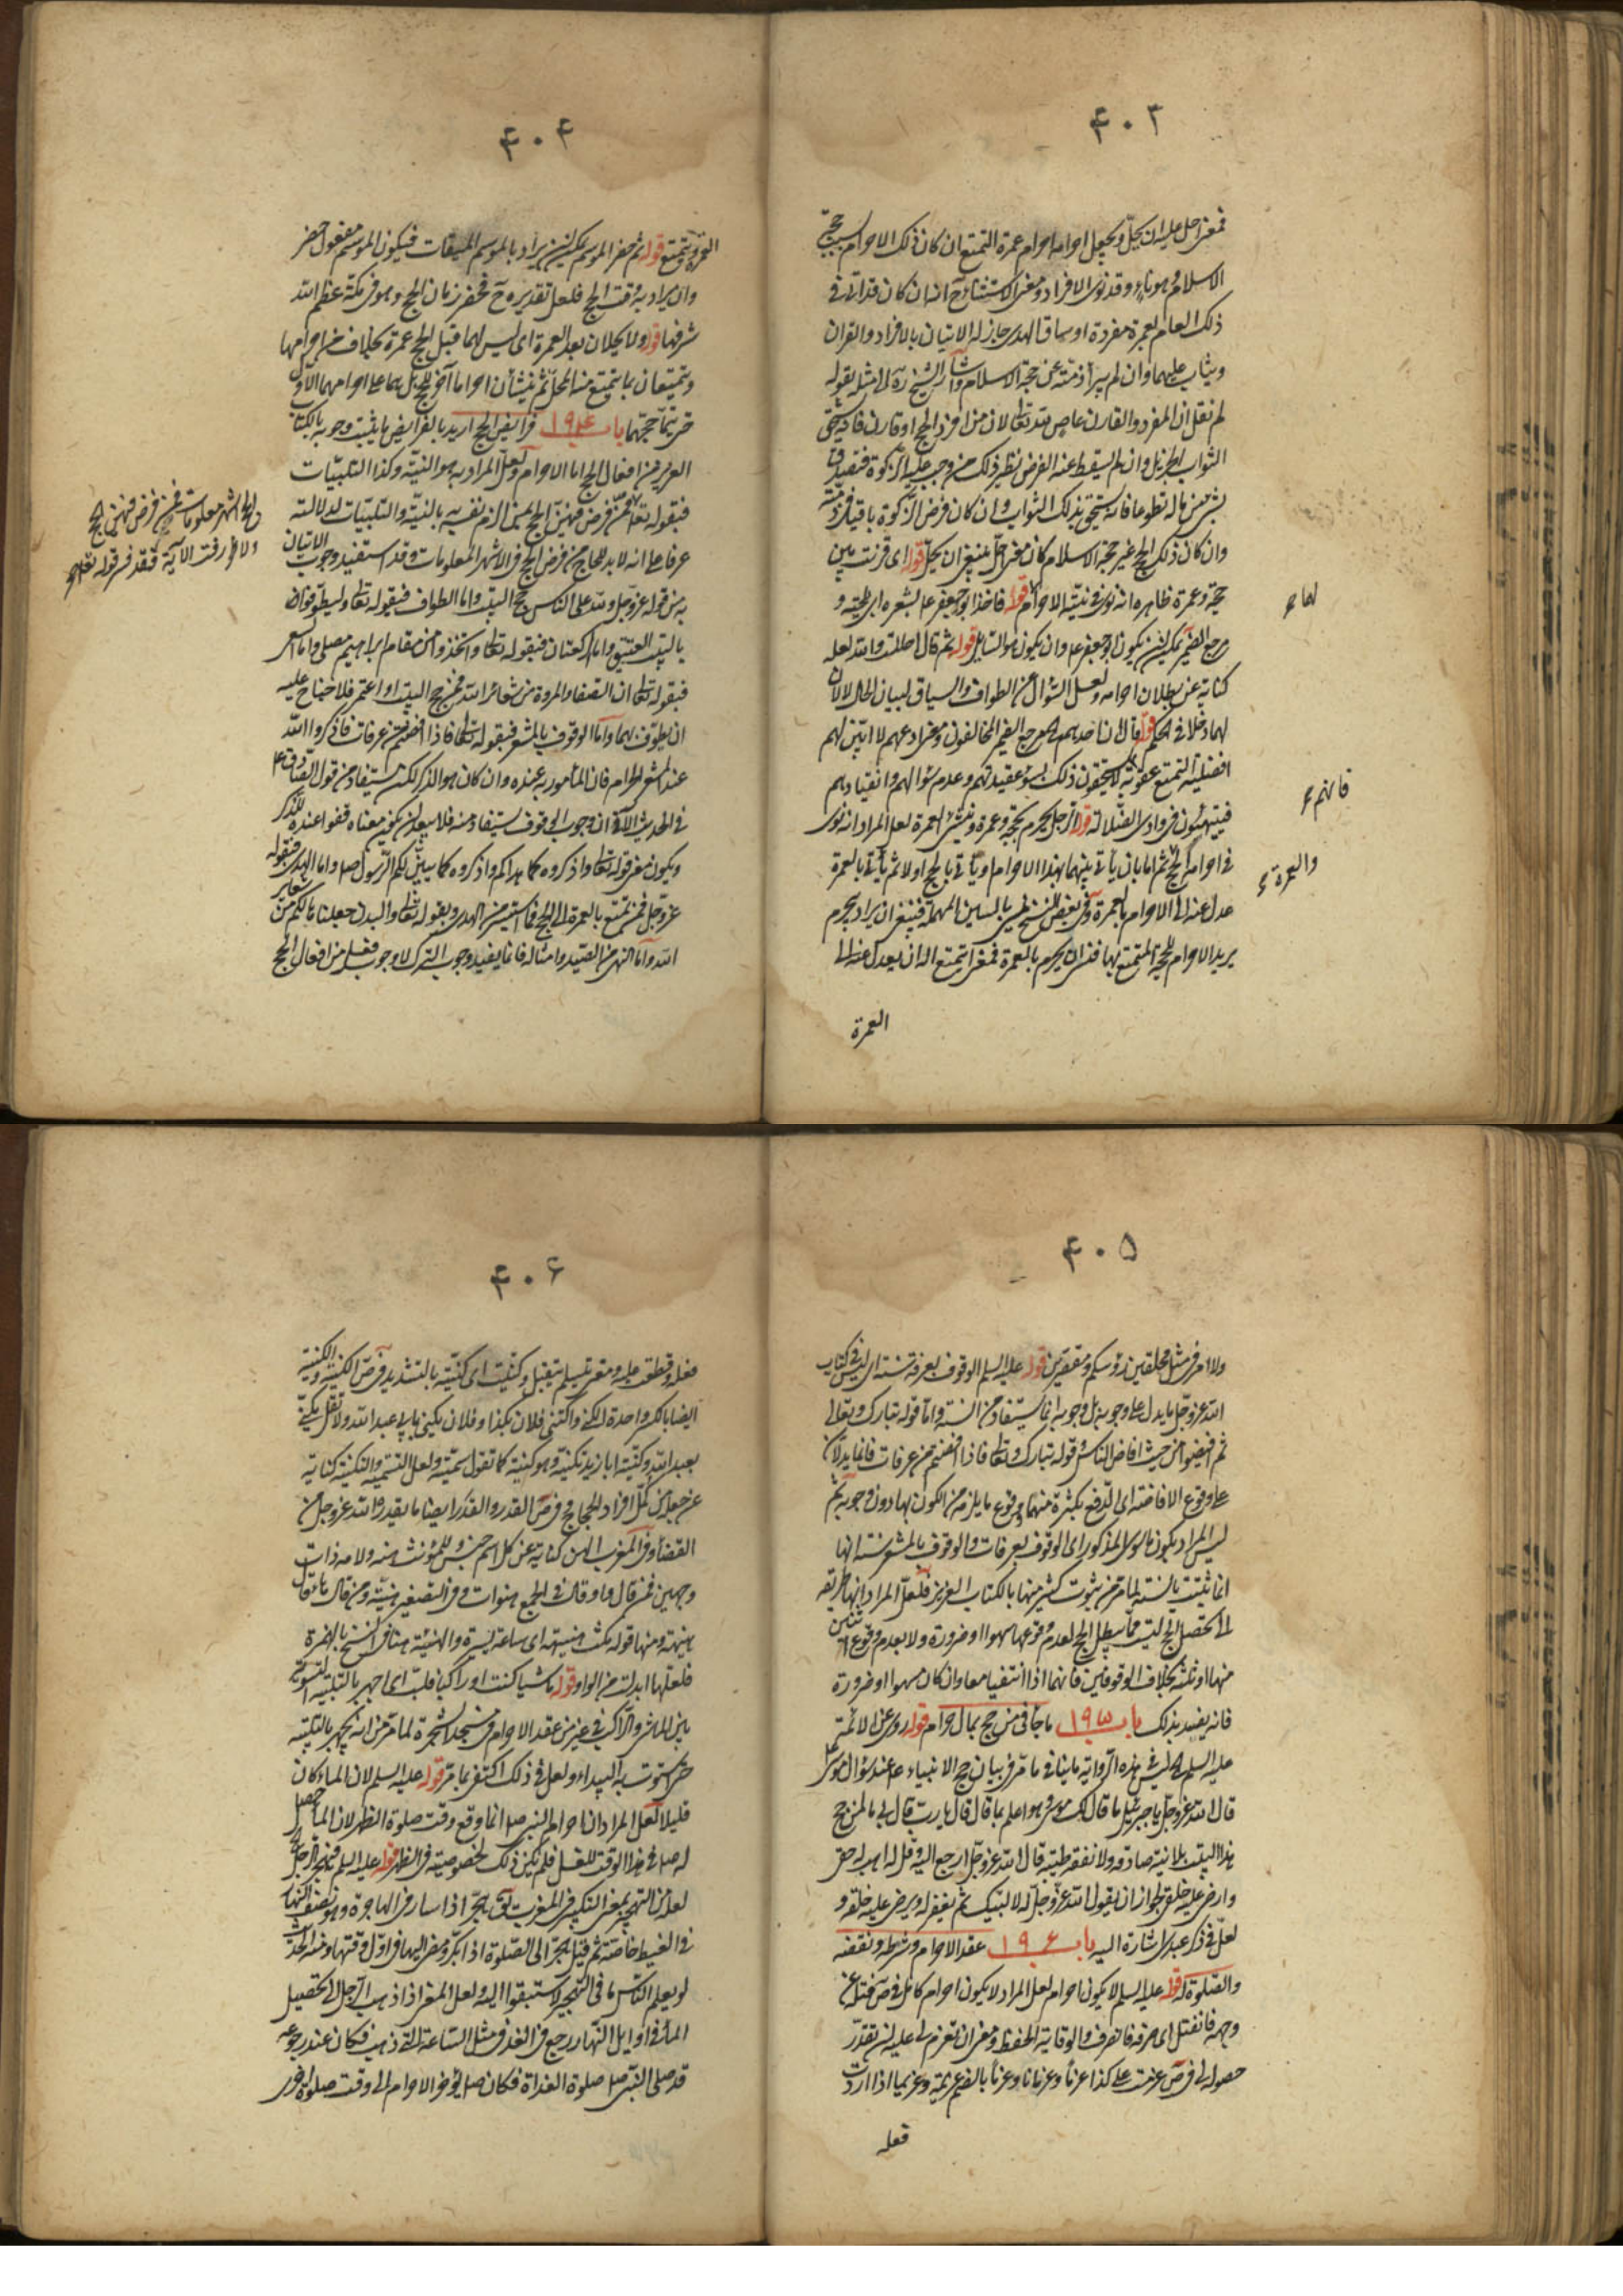 ۴۰۳
فمعنى حل عليه ان يحل ويجعل احرامه احرام عمرة التمتع ان كان ذلك الاحرام بسبب حجّ
الاسلام وهو ناء وقد نوى الافراد ومعنى الاستثناء ح انه ان كان قد اتى في
ذلك العام بعمرة مفردة او ساق الهدى جاز له الاتيان بالافراد والقران
ويثاب عليهما وان لم يبرأ ذمته عن حجة الاسلام واشار الشيخ ره الى مثله بقوله
لم نقل ان المفرد والقارن عاص لله تعالى لان من افرد الحج او قارن فانه يستحق
الثواب الجزيل وان لم يسقط عنه الفرض نظير ذلك من وجب عليه الزكوة فتصدق
بشئ من ماله تطوعا فانه يستحق بذلك الثواب وان كان فرض الزكوة باقيا في ذمته
وان كان ذلك الحج غير حجة الاسلام كان معنى حل ينبغي ان يحل قوله اى قرنت بين
حجة وعمرة ظاهره انه نوى في نيته الاحرام قوله فاخذ ابو جعفر ع بشعره اى بلحيته و
مرجع الضمير يمكن ان يكون ابو جعفر ع وان يكون هو السايل قوله ثم قال احللت والله لعله
كناية عن بطلان احرامه ولعل السؤال عن الطواف والسياق لبيان الحال لا لان
لهما دخلا في الحكم قوله قال انا ضد بهم المعرجية الضمير المخالفون ومعنى ادعهم لا ابين لهم
افضلية التمتع عقوبة يستحقون ذلك بسوء عقيدتهم وعدم سؤالهم وانقيادهم
فيتيهون في وادى الضلالة قوله الرجل يحرم بحجة وعمرة وينشئ العمرة لعل المراد انه نوى
في احرامه الحج ثم اما بان يأتي بينهما بهذا الاحرام او يأتي بالحج اولا ثم يأتي بالعمرة
عدل عنه الى الاحرام بالعمرة وفي بعض النسخ بالسين المهملة فينبغي ان يراد بيحرم
يريد الاحرام للحجة المتمتع بها فنسى ان يحرم بالعمرة فمعنى ايتمتع اله ان يعدل عنه الى
العمرة
لهما ع
فانهم ع
والعمرة ع
۴۰۴
العمرة ويتمتع قوله ثم حضر الموسم يمكن ان يراد بالموسم الميقات فيكون الموسم مفعول حضر
وان يراد به وقت الحج فلعل تقديره وح فحضر زمان الحج وهو في مكة عظم الله
شرفها قوله ولا يحلان بعد العمرة اى ليس لهما قبل الحج عمرة بخلاف من احرامها
ويتمتعان بما يتمتع منه المحل ثم ينشأن احراما آخر للحج بل هما على احرامهما الاول
حتى يتما حجهما باب ۱۹۴ فرايض الحج اريد بالفرايض ما يثبت وجوبه بالكتاب
العزيز من افعال الحج اما الاحرام ولعل المراد به هو النية وكذا التلبيات
فبقوله تعالى فمن فرض فيهن الحج بمعنى الزم نفسه بالنية والتلبيات لدلالته
عرفا على انه لا بد للحاج من فرض الحج في الاشهر المعلومات وقد استفيد وجوب الاتيان
به من قوله عز وجل ولله على الناس حج البيت واما الطواف فبقوله تعالى وليطوفوا
بالبيت العتيق واما الركعتان فبقوله تعالى واتخذوا من مقام ابراهيم مصلى واما السعى
فبقوله تعالى ان الصفا والمروة من شعائر الله فمن حج البيت او اعتمر فلا جناح عليه
ان يطوف بهما واما الوقوف بالمشعر فبقوله تعالى فاذا افضتم من عرفات فاذكروا الله
عند المشعر الحرام فان المأمور به عنده وان كان هو الذكر لكن يستفاد من قول الصادق ع
في الحديث الآتي ان وجوب الوقوف يستفاد منه فلا يبعد ان يكون معناه قفوا عنده للذكر
ويكون معنى قوله تعالى واذكروه كما هداكم واذكروه كما يبين لكم الرسول ص واما الهدى فبقوله
عز وجل فمن تمتع بالعمرة الى الحج فما استيسر من الهدى وبقوله تعالى والبدن جعلناها لكم من شعاير
الله واما النهى عن الصيد وامثاله فانما يفيد وجوب الترك لا وجوب فعل من افعال الحج
الحج اشهر معلومات فمن فرض فيهن الحج
فلا رفث الآية فقد فسر قوله تعالى
۴۰۵
ولا امر في مثل محلقين رؤسكم ومقصرين قوله عليه السلم الوقوف بعرفة سنة اى ليس في كتاب
الله عز وجل ما يدل على وجوبه بل وجوبه انما يستفاد من السنة واما قوله تبارك وتعالى
ثم افيضوا من حيث افاض الناس وقوله تبارك وتعالى فاذا افضتم من عرفات فانما يدلان
على وقوع الافاضة اى الدفع بكثرة منهما ووقوع ما يلزمه من الكون بها دون وجوبه ثم
ليس المراد بكون ما سوى المذكور اى الوقوف بعرفات والوقوف بالمشعر سنة انها
انما تثبت بالسنة لما مر من ثبوت كثير منها بالكتاب العزيز فلعل المراد انها طريقة
الى تحصيل الحج ليست مما يبطل الحج لعدم وقوعها سهوا او ضرورة ولا بعدم وقوع اثنين
منها او ثلثة بخلاف الوقوفين فانهما اذا انتفيا معا وان كان سهوا او ضرورة
فانه يفسد بذلك باب ۱۹۵ ما جاء في من حج بمال حرام قوله روى عن الائمة
عليه السلم ليس في هذه الرواية ما ينافي ما مر في بيان حج الانبياء ع عند سؤال موسى
قال الله عز وجل يا جبرئيل ما قال لك موسى وهو اعلم بما قال قال يا رب قال لي ما لمن حج
هذا البيت بلا نية صادقه ولا نفقه طيبه قال الله عز وجل ارجع اليه وقل له اهب له حقى
وارضى عليه خلقى لجواز ان يقول الله عز وجل له لا لبيك ثم يغفر له ويرضى عليه خلقه و
لعل في ذكر عبدى اشارة اليه باب ۱۹۶ عقد الاحرام وشرطه ونقضه
والصلوة له قوله عليه السلم لا يكون احرام لعل المراد لا يكون احرام كامل في ص فتله عن
وجهه فانفتل اى صرفه فانصرف والوقاية الحفظ ومعنى ان تعزم لي عليه ان تقدر
حصوله لي في ص عزمت على كذا عزما وعزمانا وعزما بالضم وعزيمة وعزيما اذا اردت
فعله
۴۰۶
فعله وقطعت عليه ومعنى تسيلم يتقبل وكنيت اى كنيته بالتشديد في ص الكنية والكنية
ايضا بالكسر واحدة الكنى واكتنى فلان بكذا وفلان يكنى بابي عبد الله ولا تقل يكنى
بعبد الله وكنيته ابا زيد تكنية وهو كنيه كما تقول سميه ولعل التسمية والتكنية كناية
عن جعله من كل افراد الحجاج في ص القدر والقدر ايضا ما يقدره الله عز وجل من
القضاء وفي المغرب الهن كناية عن كل اسم جنس وللمؤنث هنه ولامه ذات
وجهين فمن قال واو قال في الجمع هنوات وفي التصغير هنية ومن قال هاء قال
هنيهة ومنها قوله مكث هنيهة اى ساعة يسيرة والهنيئة هنا في النسخ بالهمزة
فلعلها ابدلت من الواو قوله ماشيا كنت او راكبا فلب اى اجهر بالتلبية التسوية
بين الماشي والراكب في غير من عقد الاحرام في مسجد الشجرة لما مر من انه يجهر بالتلبية
حتى استوت به البيداء ولعل في ذلك اكتفى بما مر قوله عليه السلم لان الماء كان
قليلا لعل المراد ان احرام النبي ص انما وقع وقت صلوة الظهر لان الماء حصل
له ص في هذا الوقت للغسل فلم يكن ذلك لخصوصية في الظهر قوله عليه السلم فيهجر الرجل
لعله من التهجير بمعنى التبكير في المغرب يق هجر اذا سار في الهاجرة وهو نصف النهار
في القيظ خاصة ثم قيل هجر الى الصلوة اذا بكر ومضى اليها في اول وقتها ومنه الحديث
لو يعلم الناس ما في التهجير لاستبقوا اليه ولعل المعنى اذا ذهب الرجل الى تحصيل
الماء في اوايل النهار رجع في الغد في مثل الساعة التي ذهب فكان عند رجوعه
قد صلى النبي ص صلوة الغداة فكان ص يؤخر الاحرام الى وقت صلوة اخرى